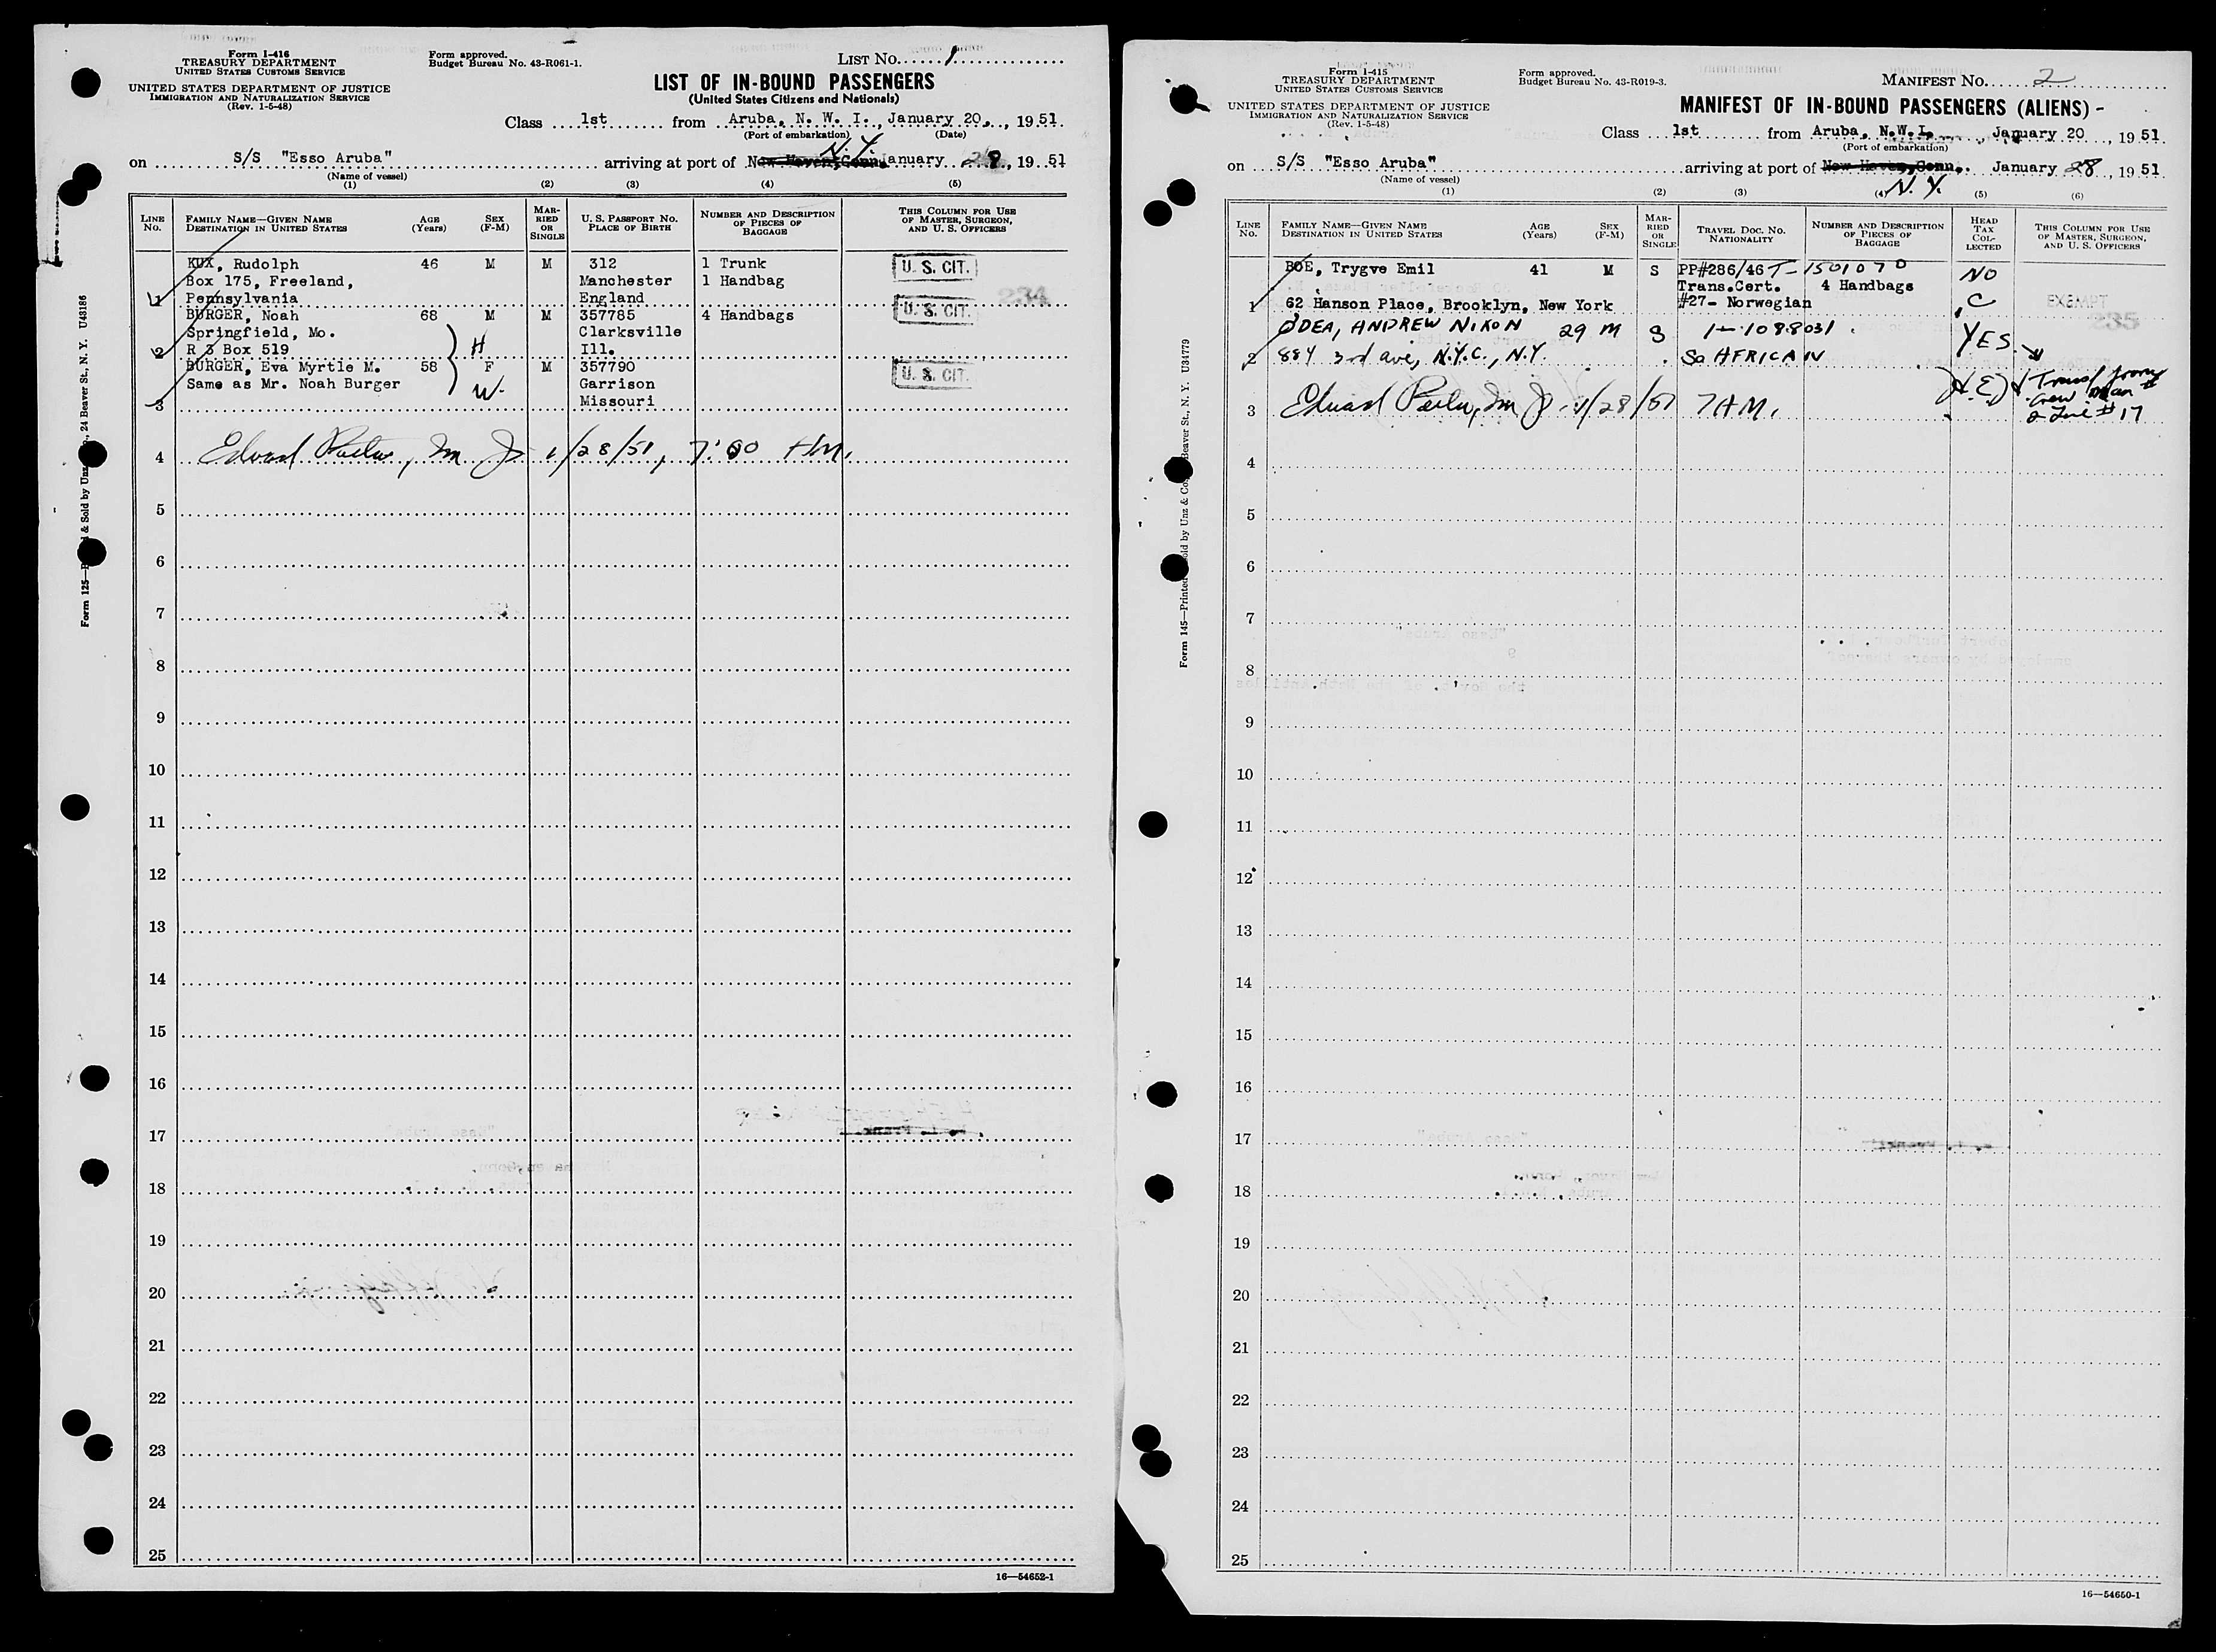 Form I-416
TREASURY DEPARTMENT
UNITED STATES CUSTOMS SERVICE
UNITED STATES DEPARTMENT OF JUSTICE
IMMIGRATION AND NATURALIZATION SERVICE
(Rev. 1-5-48)
Form approved.
Budget Bureau No. 43-R061-1.
LIST No. 1
LIST OF IN-BOUND PASSENGERS
(United States Citizens and Nationals)
Class 1st from Aruba, N. W. I., January 20, 1951
(Port of embarkation) (Date)
N.Y.
on S/S "Esso Aruba" arriving at port of New Haven, Conn. January 28, 1951
(Name of vessel)
(1) (2) (3) (4) (5)
LINE No.
FAMILY NAME—GIVEN NAME
DESTINATION IN UNITED STATES
AGE (Years)
SEX (F-M)
MARRIED OR SINGLE
U. S. PASSPORT NO.
PLACE OF BIRTH
NUMBER AND DESCRIPTION OF PIECES OF BAGGAGE
THIS COLUMN FOR USE OF MASTER, SURGEON, AND U. S. OFFICERS
KUX, Rudolph 46 M M 312 1 Trunk U. S. CIT.
Box 175, Freeland, Manchester 1 Handbag
1 Pennsylvania England 234
BURGER, Noah 68 M M 357785 4 Handbags U. S. CIT.
Springfield, Mo. Clarksville
2 R 3 Box 519 H Ill.
BURGER, Eva Myrtle M. 58 F M 357790 U. S. CIT.
Same as Mr. Noah Burger W. Garrison
3 Missouri
4 1/28/51, 7:00 AM.
5
6
7
8
9
10
11
12
13
14
15
16
17
18
19
20
21
22
23
24
25
16—54652-1
24 Beaver St., N. Y. U43186
Form 125—
& Sold by Unz
Form I-415
TREASURY DEPARTMENT
UNITED STATES CUSTOMS SERVICE
UNITED STATES DEPARTMENT OF JUSTICE
IMMIGRATION AND NATURALIZATION SERVICE
(Rev. 1-5-48)
Form approved.
Budget Bureau No. 43-R019-3.
MANIFEST No. 2
MANIFEST OF IN-BOUND PASSENGERS (ALIENS)
Class 1st from Aruba, N.W.I., January 20, 1951
(Port of embarkation)
on S/S "Esso Aruba" arriving at port of New Haven, Conn. January 28, 1951
(Name of vessel)
N.Y.
(1) (2) (3) (4) (5) (6)
LINE No.
FAMILY NAME—GIVEN NAME
DESTINATION IN UNITED STATES
AGE (Years)
SEX (F-M)
MARRIED OR SINGLE
TRAVEL DOC. NO.
NATIONALITY
NUMBER AND DESCRIPTION OF PIECES OF BAGGAGE
HEAD TAX COLLECTED
THIS COLUMN FOR USE OF MASTER, SURGEON, AND U. S. OFFICERS
BOE, Trygve Emil 41 M S PP#286/46 T-1501070 NO
Trans.Cert. 4 Handbags
1 62 Hanson Place, Brooklyn, New York #27- Norwegian C EXEMPT
235
O'DEA, ANDREW NIXON 29 M S 1-1088031 YES
2 884 3rd ave, N.Y.C., N.Y. So AFRICAN
3 1/28/51 7AM. (H.E.) Transf from Crew Man # 2 Line #17
4
5
6
7
8
9
10
11
12
13
14
15
16
17
18
19
20
21
22
23
24
25
16—54650-1
Form 145—Printed
Sold by Unz & Co.
Beaver St., N. Y. U34779